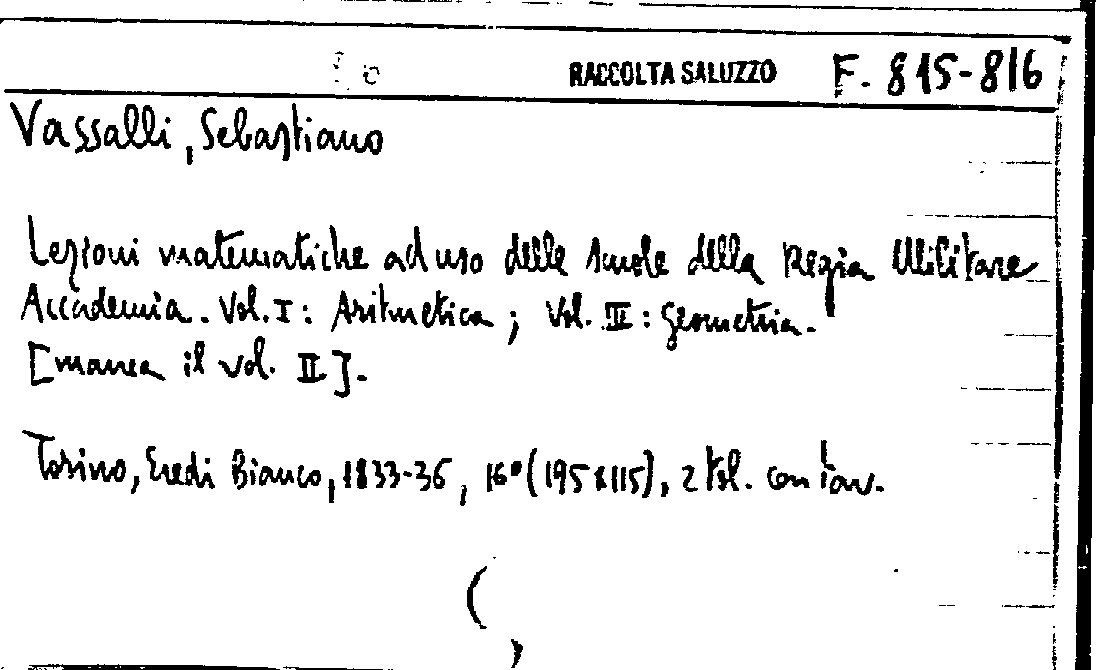 RACCOLTA SALUZZO F. 815-816
Vassalli, Sebastiano
Lezioni matematiche ad uso delle scuole della Regia Militare
Accademia. Vol. I : Aritmetica ; Vol. III : Geometria.
[manca il vol. II].
Torino, Eredi Bianco, 1833-36, 16° (195x115), 2 vol. con tav.